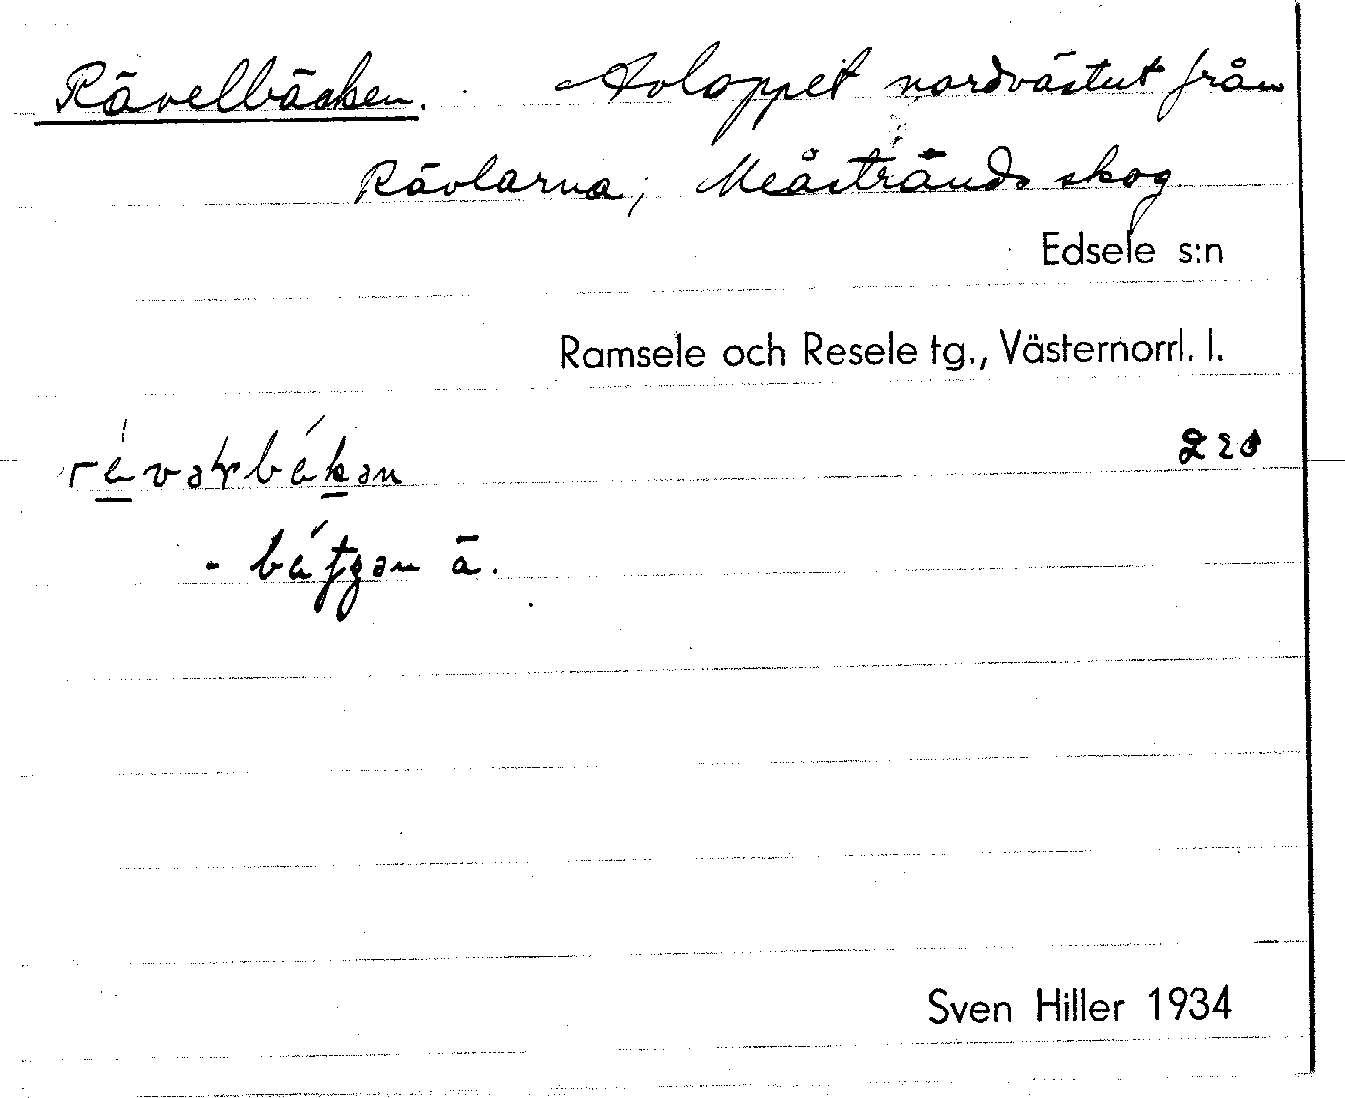 Rävelbäcken. Avloppet nordvästut från
Rävlarna, Meåstrands skog
Edsele s:n
Ramsele och Resele tg., Västernorrl. l.
220
- ä.
Sven Hiller 1934